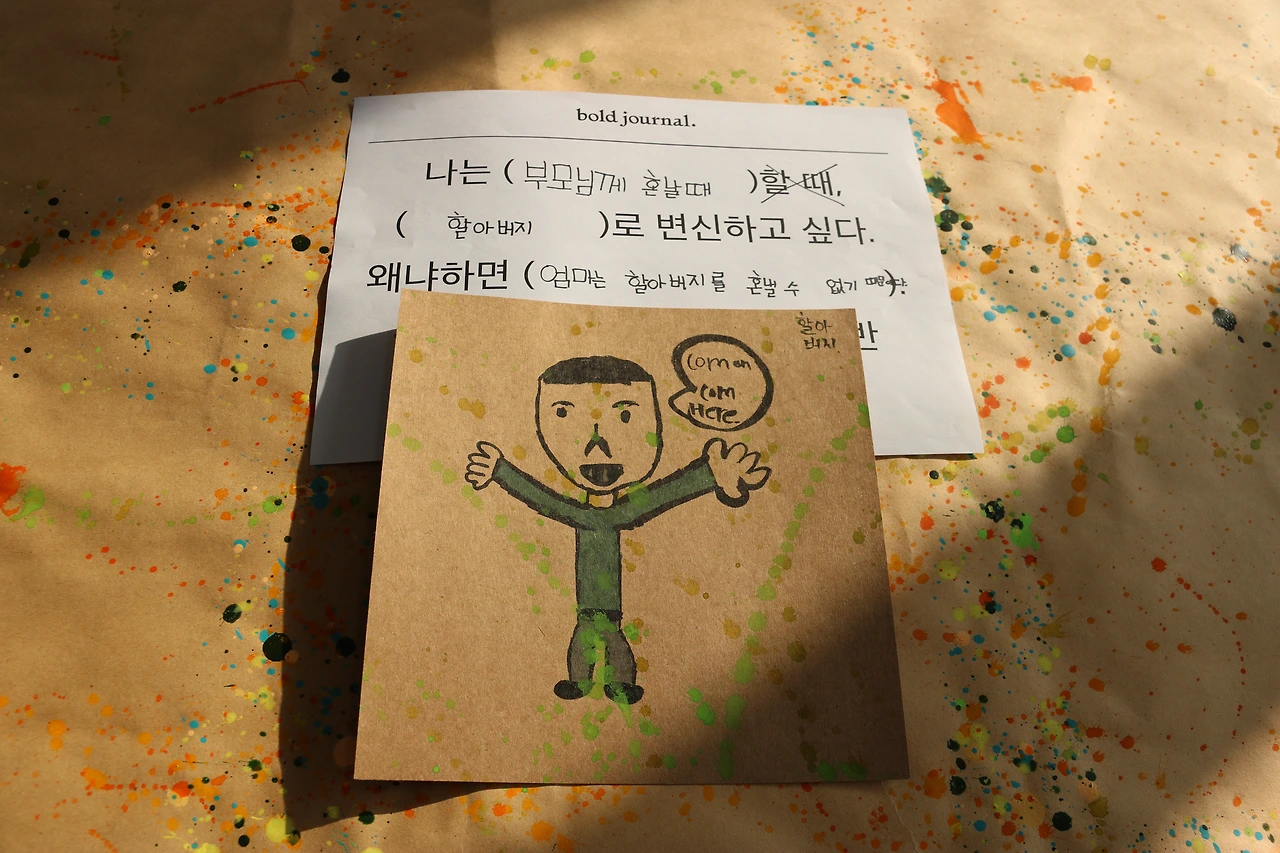 bold journal.
나는 ( 부모님께 혼날 때 )할 때,
( 할아버지 )로 변신하고 싶다.
왜냐하면 (엄마는 할아버지를 혼낼 수 없기 때문이다).
반
할아
버지
Com on
com
Here.